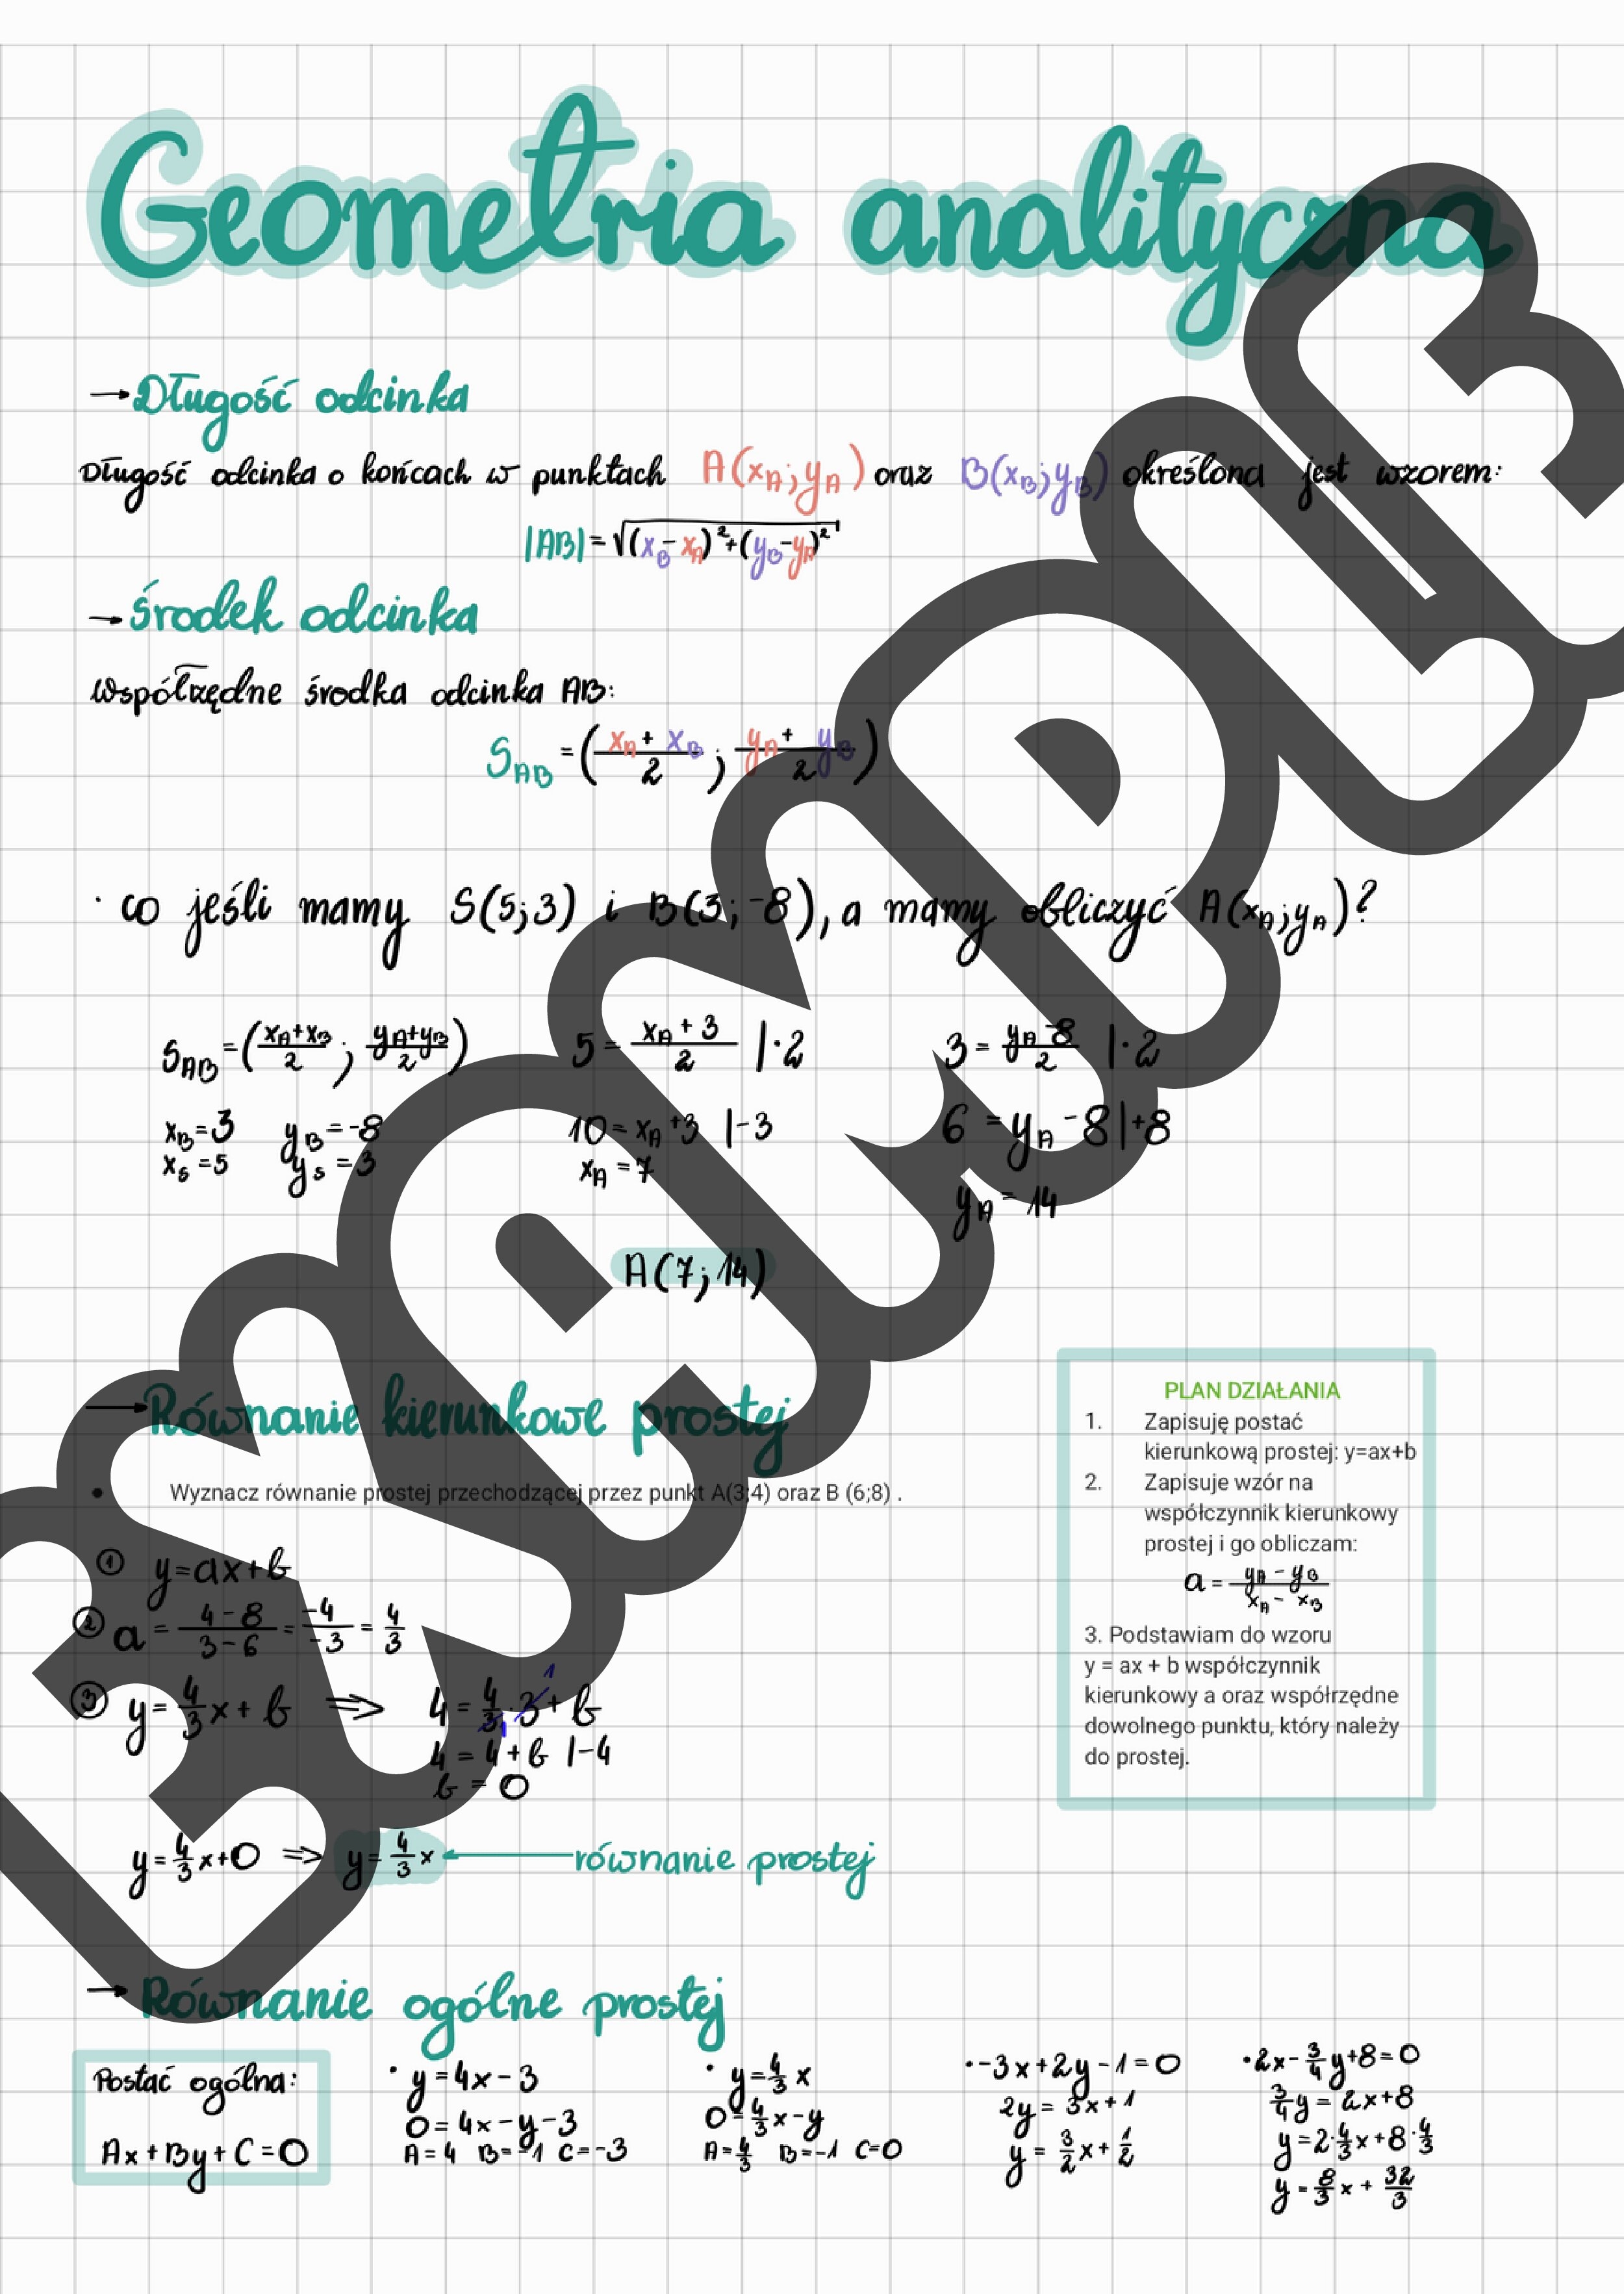 Geometria analityczna
→ Długość odcinka
Długość odcinka o końcach w punktach A(x_A; y_A) oraz B(x_B; y_B) określona jest wzorem:
|AB| = √((x_B - x_A)² + (y_B - y_A)²)
→ środek odcinka
współrzędne środka odcinka AB:
S_AB = ((x_A + x_B)/2 ; (y_A + y_B)/2)
· co jeśli mamy S(5;3) i B(3;-8), a mamy obliczyć A(x_A; y_A)?
S_AB = ((x_A+x_B)/2 ; (y_A+y_B)/2)
x_B = 3 y_B = -8
x_S = 5 y_S = 3
5 = (x_A + 3)/2 |·2
10 = x_A + 3 |-3
x_A = 7
3 = (y_A - 8)/2 |·2
6 = y_A - 8 |+8
y_A = 14
A(7; 14)
→ Równanie kierunkowe prostej
• Wyznacz równanie prostej przechodzącej przez punkt A(3;4) oraz B (6;8) .
① y = ax + b
② a = (4 - 8)/(3 - 6) = -4/-3 = 4/3
③ y = 4/3 x + b ⇒ 4 = 4/3 · 3 + b
1
1
4 = 4 + b |-4
b = 0
y = 4/3 x + 0 ⇒ y = 4/3 x ← równanie prostej
PLAN DZIAŁANIA
1. Zapisuję postać
kierunkową prostej: y=ax+b
2. Zapisuje wzór na
współczynnik kierunkowy
prostej i go obliczam:
a = (y_A - y_B)/(x_A - x_B)
3. Podstawiam do wzoru
y = ax + b współczynnik
kierunkowy a oraz współrzędne
dowolnego punktu, który należy
do prostej.
→ Równanie ogólne prostej
Postać ogólna:
Ax + By + C = 0
· y = 4x - 3
0 = 4x - y - 3
A = 4 B = -1 C = -3
· y = 4/3 x
0 = 4/3 x - y
A = 4/3 B = -1 C = 0
· -3x + 2y - 1 = 0
2y = 3x + 1
y = 3/2 x + 1/2
· 2x - 3/4 y + 8 = 0
3/4 y = 2x + 8
y = 2 · 4/3 x + 8 · 4/3
y = 8/3 x + 32/3